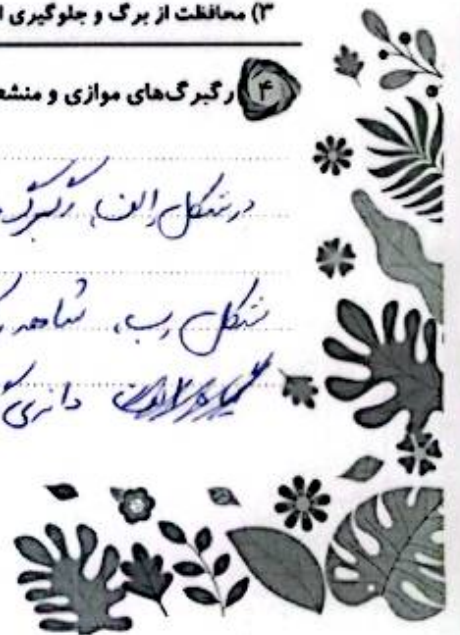 ۳) محافظت از برگ و جلوگیری
۴ رگبرگ‌های موازی و منشع
در شکل الف، رگبرگ
شکل ب، شاهد
دانه‌ی